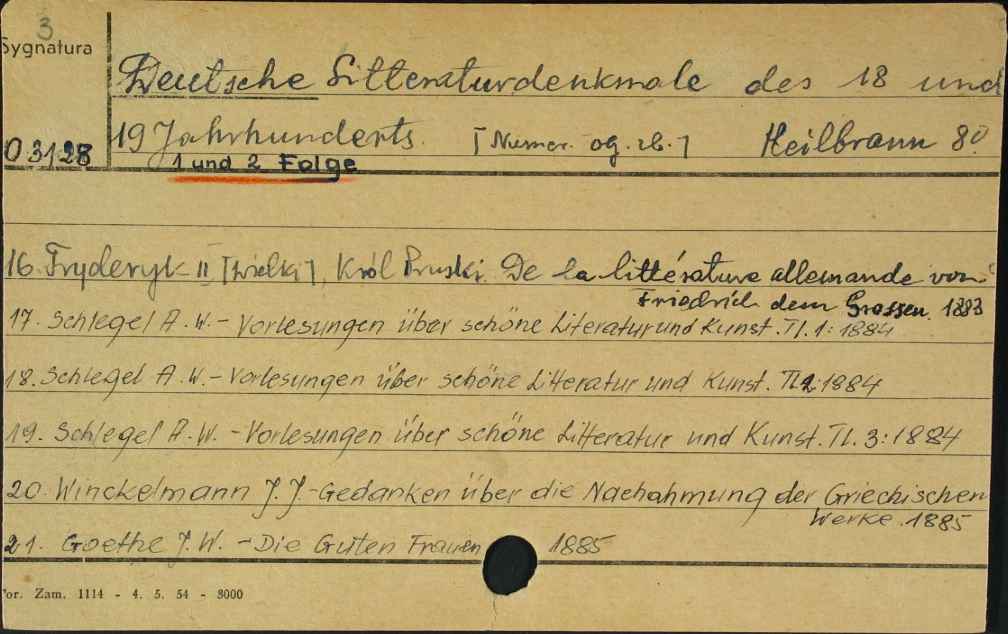 3
Sygnatura
Deutsche Litteraturdenkmale des 18 und
19 Jahrhunderts. [Numer. og. zb.] Heilbronn 80
03128
1 und 2 Folge
16. Fryderyk II [Wielki], Król Pruski. De la littérature allemande von
Friedrich dem Grossen. 1883
17. Schlegel A.W. - Vorlesungen über schöne Literatur und Kunst. Tl. 1: 1884
18. Schlegel A.W. - Vorlesungen über schöne Litteratur und Kunst. Tl. 2: 1884
19. Schlegel A.W. - Vorlesungen über schöne Litteratur und Kunst. Tl. 3: 1884
20. Winckelmann J.J. - Gedanken über die Nachahmung der Griechischen
Werke. 1885
21. Goethe J.W. - Die Guten Frauen 1885
or. Zam. 1114 - 4. 5. 54 - 3000